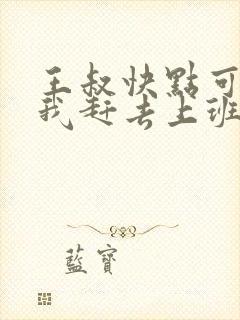 王叔快點可
我赶去上班
藍寶